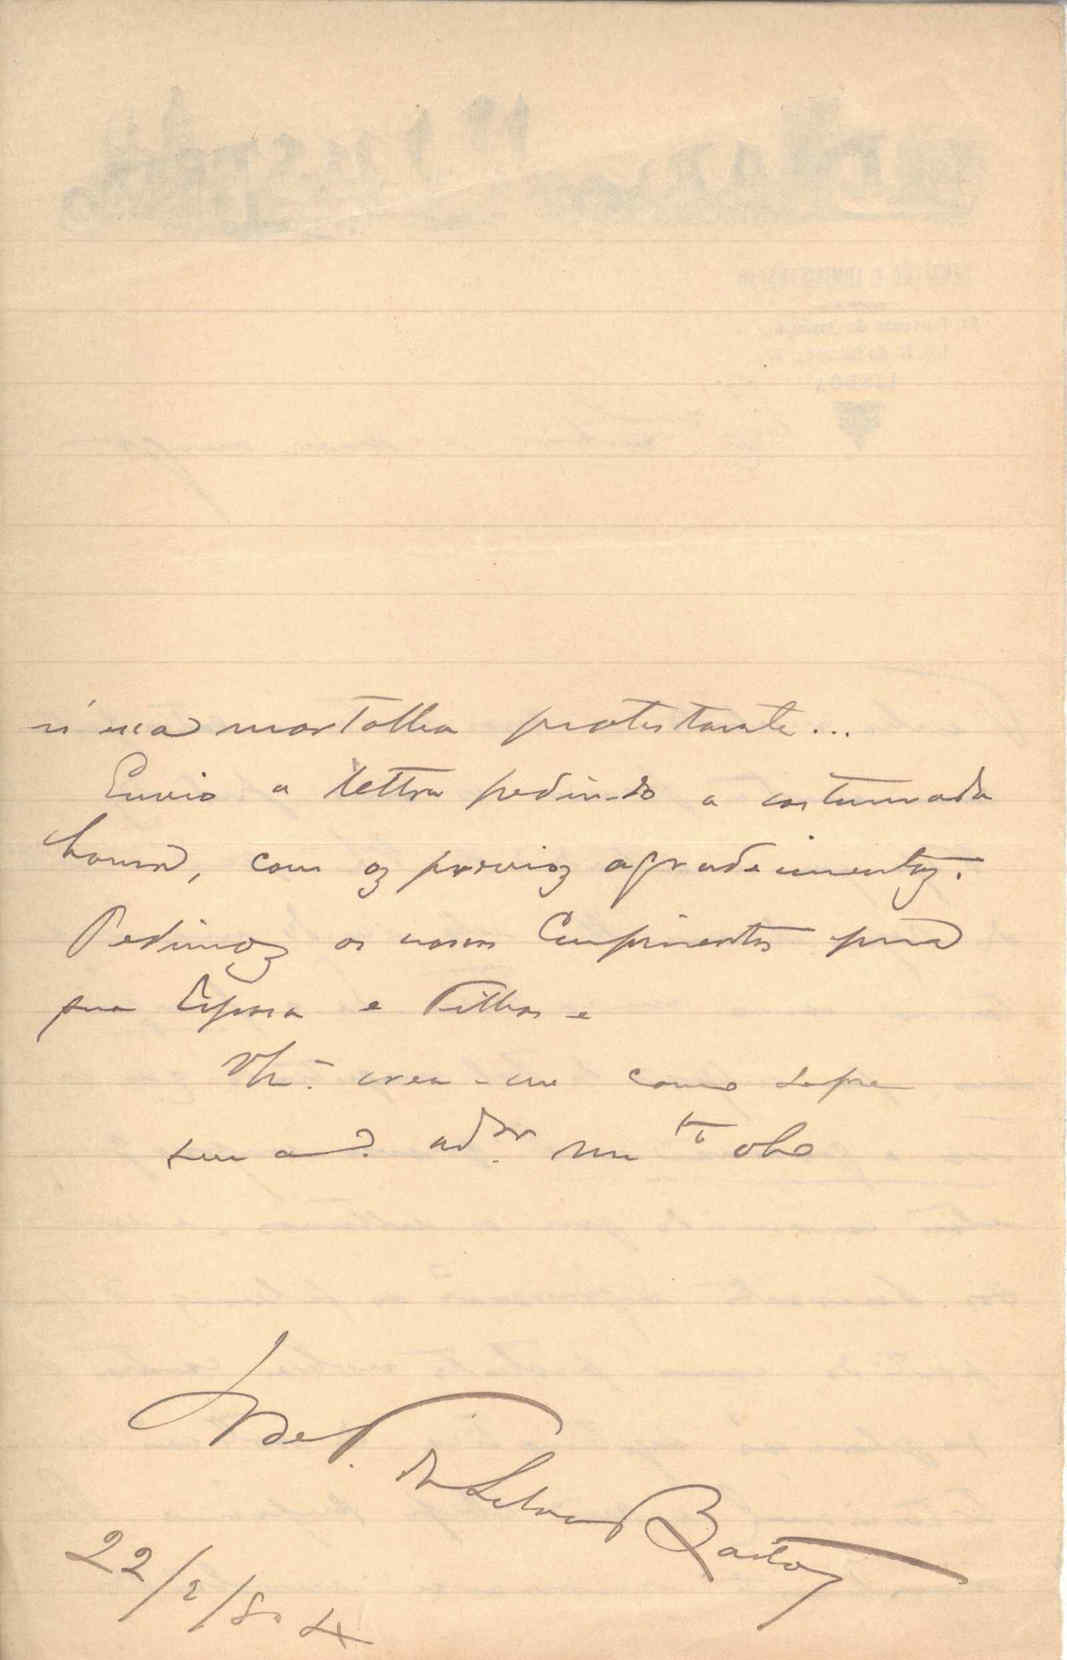 n'uma mortalha protestante...
Envio a lettra pedindo a costumada
honra, com os previos agradecimentos.
Pedimos os nossos Cumprimentos para
sua Esposa e Filhos e
V. Exª. crea-me como sempre
seu am.º ad.ºr m.to obo
da Silva Bastos
22/2/80 4